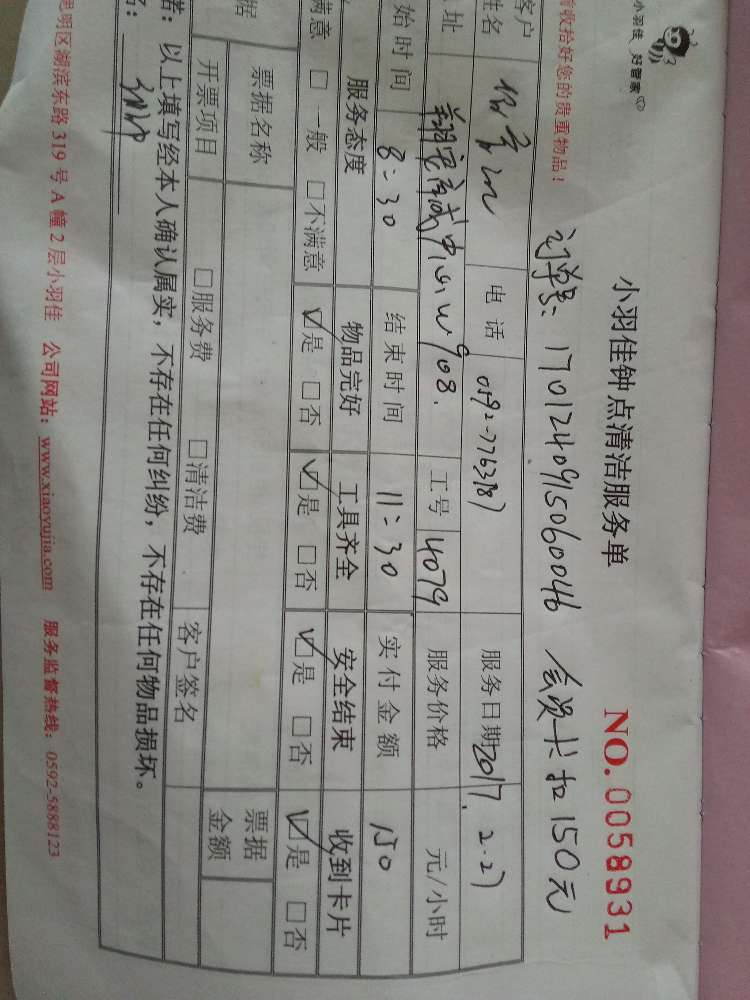 小羽佳 好管家
小羽佳钟点清洁服务单 NO.0058931
前收拾好您的贵重物品!
订单号: 1701240915060046 会员卡扣150元
客户
姓名 电话 0592-7763187 服务日期 2017.2.27
址 中心W908. 工号 4079 服务价格 元/小时
始时间 8:30 结束时间 11:30 实付金额 150
服务态度 物品完好 工具齐全 安全结束 收到卡片
满意 □一般 □不满意 ☑是 □否 ☑是 □否 ☑是 □否 ☑是 □否
据 票据名称 票据
金额
开票项目 □服务费 □清洁费 客户签名
诺: 以上填写经本人确认属实, 不存在任何纠纷, 不存在任何物品损坏。
名:
思明区湖滨东路 319 号 A 幢 2 层小羽佳 公司网站: www.xiaoyujia.com 服务监督热线: 0592-5888123